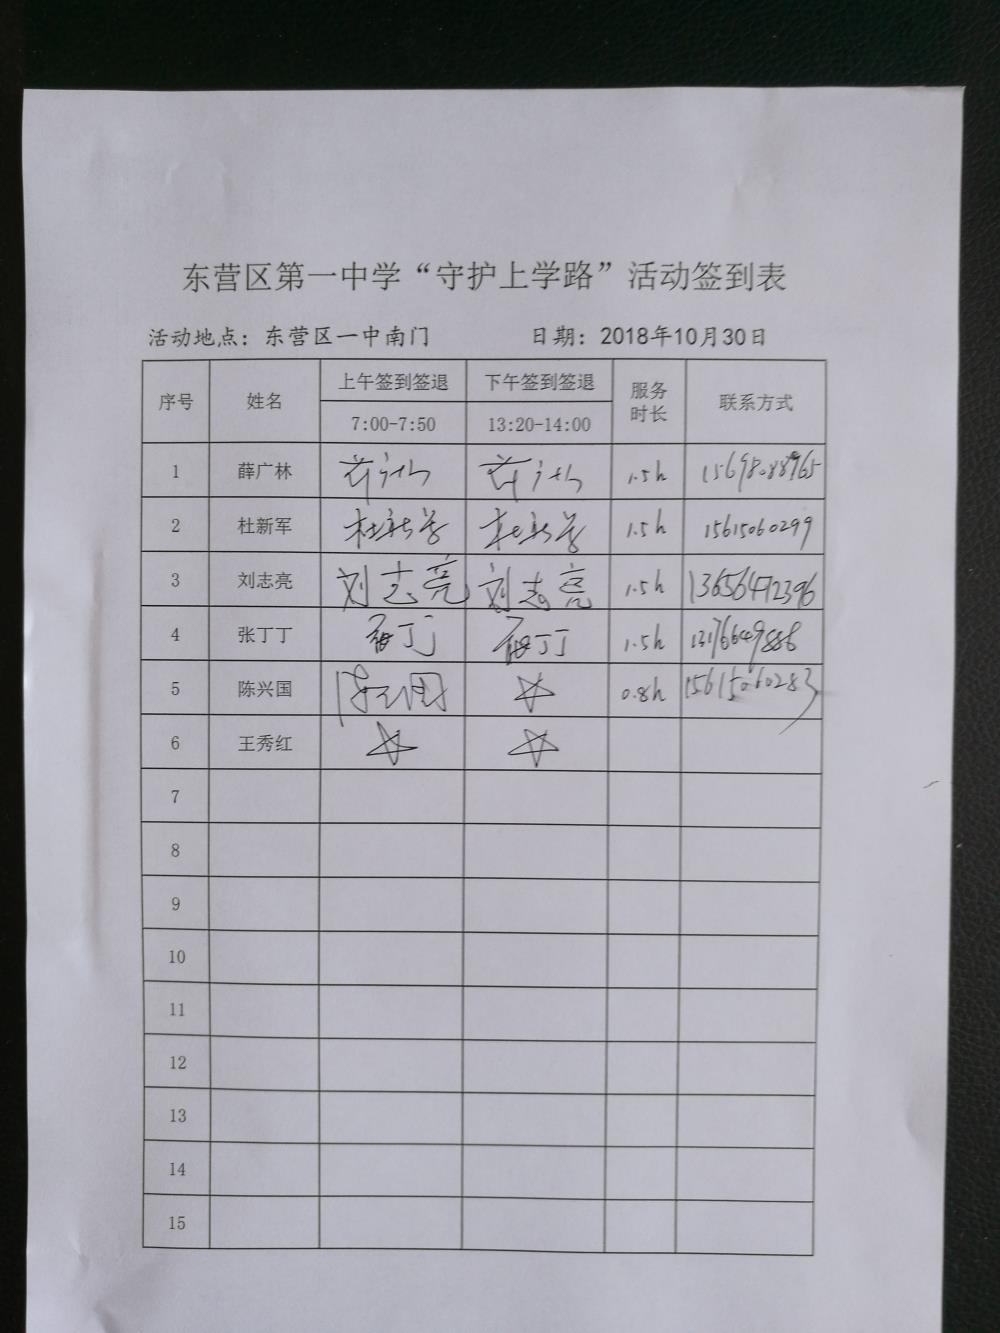 东营区第一中学“守护上学路”活动签到表
活动地点：东营区一中南门 日期：2018年10月30日
序号 姓名 上午签到签退 下午签到签退 服务时长 联系方式
7:00-7:50 13:20-14:00
1 薛广林 1.5h
2 杜新军 杜新军 杜新军 1.5h 15615060299
3 刘志亮 刘志亮 刘志亮 1.5h 13656472396
4 张丁丁 张丁丁 张丁丁 1.5h 13176649886
5 陈兴国 陈兴国 ☆ 0.8h 15615060283
6 王秀红 ☆ ☆
7
8
9
10
11
12
13
14
15